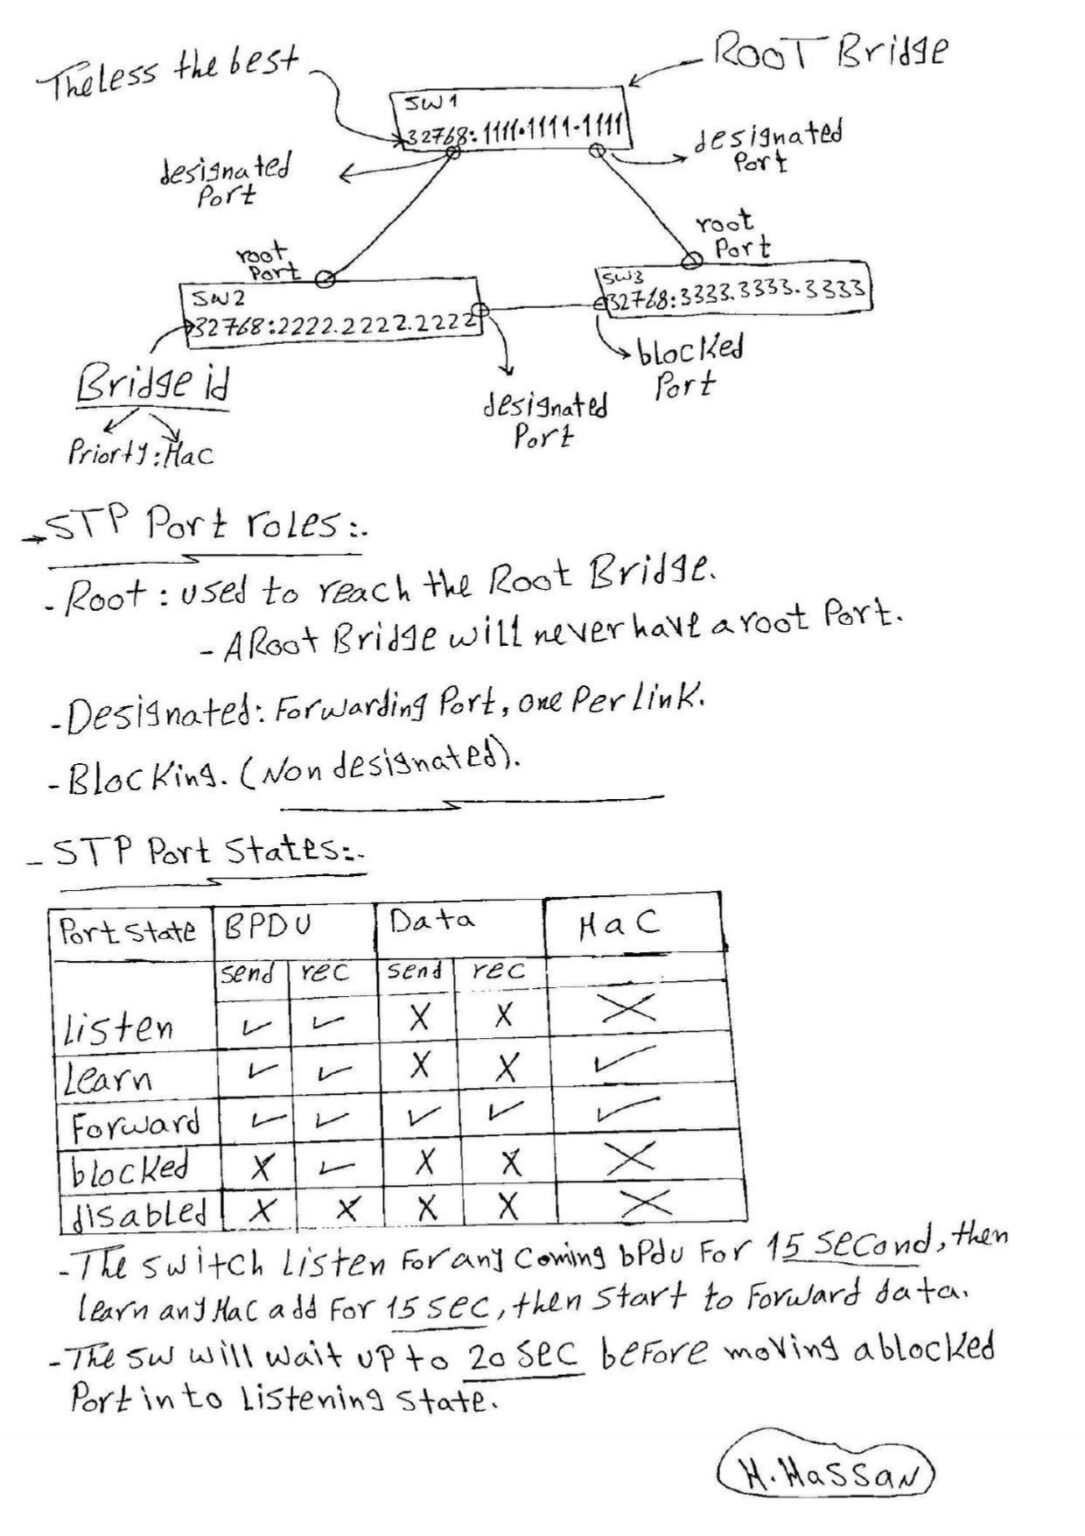 The less the best
ROOT Bridge
SW1
32768:1111.1111.1111
designated
Port
designated
Port
root
Port
root
Port
SW2
32768:2222.2222.2222
SW3
32768:3333.3333.3333
Bridge id
Priorty:Mac
designated
Port
blocked
Port
→STP Port roles:.
- Root: used to reach the Root Bridge.
- A Root Bridge will never have a root Port.
- Designated: Forwarding Port, one Per link.
- Blocking. (Non designated).
- STP Port States:.
Port state BPDU Data Mac
send rec send rec
Listen ✓ ✓ X X X
Learn ✓ ✓ X X ✓
Forward ✓ ✓ ✓ ✓ ✓
blocked X ✓ X X X
disabled X X X X X
- The switch Listen For any Coming bPdu For 15 second, then
learn any Mac add For 15 sec, then start to Forward data.
- The SW will wait up to 20 sec before moving a blocked
Port in to Listening state.
M.Hassan